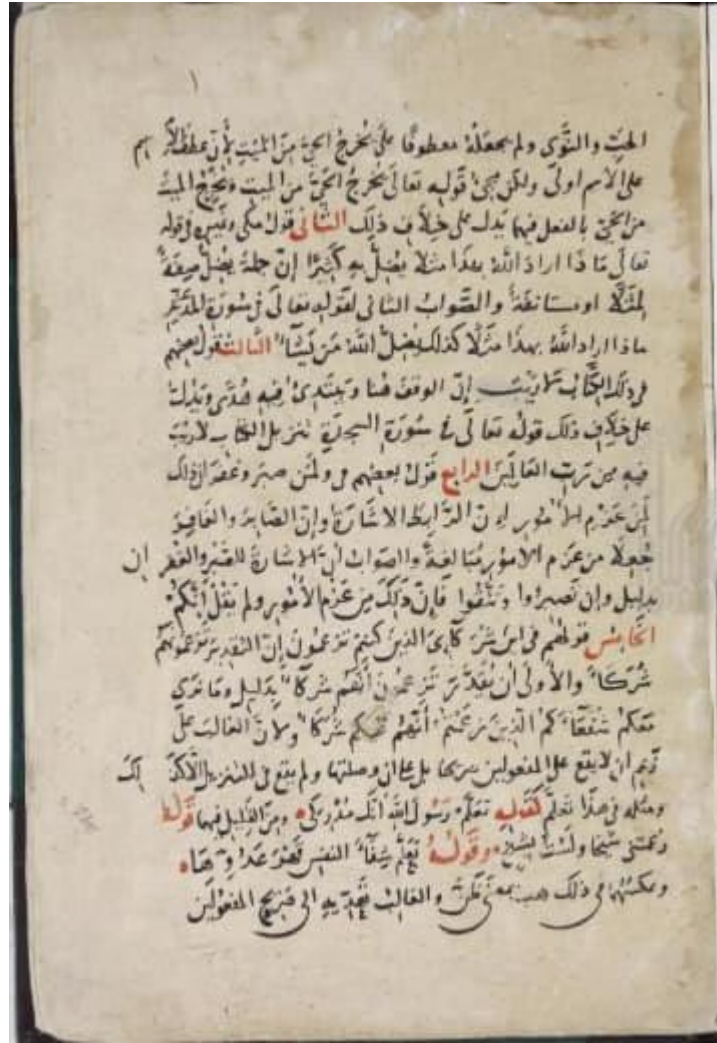 الحبّ والنَّوى ولم يجعله معطوفًا على يُخرجُ الحيَّ من الميّتِ لأنّ عطف الاسم
على الاسم اولى ولكن مجئ قوله تعالى يُخرجُ الحَيَّ من الميت ويُخرِجُ الميتَ
من الحَيِّ بالفعل فيهما يدل على خِلاف ذلك الثّانى قول مكى وغيره فى قوله
تعالى مَاذَا اراد اللهُ بهذا مثلا يضلُّ به كثيرًا إنّ جملة يضلّ صفةٌ
لمَثلًا او مستانفةٌ والصَّوابُ الثانى لقوله تعالى فى سُورَة المدَّثِّر
ماذا اراد اللهُ بهذا مثَلًا كذلك يُضلُّ اللهُ مَن يَشاءُ الثّالث قول بعضهم
فى ذلك الكتابُ لا ريبَ إنّ الوقف هُنا ويبتدئ فيه هُدًى ويدلّ
على خلاف ذلك قوله تعالى فى سُورَة السّجدة تنزيل الكتاب لا ريبَ
فيه مِن رَبّ العَالمِينَ الرابع قولُ بعضهم فى ولمَن صبَر وغفَر ان ذلك
لمِن عَزْمِ الأمُورِ إنّ الرَّابط الاشارَة وإن الصَّابر والغافِرَ
جُعِلَا مِن عَزم الامُور مُبالغةً والصَوابُ أنّ الاشارةَ للصَّبر والغفران
بدليل وإن تصبرُوا وتتّقُوا فَإنّ ذلك مِن عَزْم الأمُور ولم يقل إنّكم
الخامِس قولهُم فى اين شُرَكَائِىَ الذين كنتم تزعمُونَ إنّ التقدير تزعمُونهم
شُرَكَاءَ والأولى أن يُقَدَّرَ تزعمُونَ أنّهُم شركاءُ بدليل ومَا نَرى
مَعَكم شُفعَاءَكُم الّذينَ زعَمتم أنّهُم فيكم شُرَكاءُ ولأنّ الغالبَ على
زعم ان لا يقع على المفعولين صريحًا بل على ان وصلتها ولم يقع فى التنزيل الّا كذلك
ومثله فى هذا تعلّم كقوله تعلّم رَسُولَ اللهِ أنّكَ مُدْرِكى ومِن القليل فيهما قوله
زعمتنى شيخًا ولستُ بشيخٍ وقولهُ تعلّم شِفاءَ النفس قَهْرَ عَدُوّهَا
وعكسُهُما فى ذلك هب بمعنى ظُنَّ والغالبُ تعدّيه الى صَريح المفعُولَين